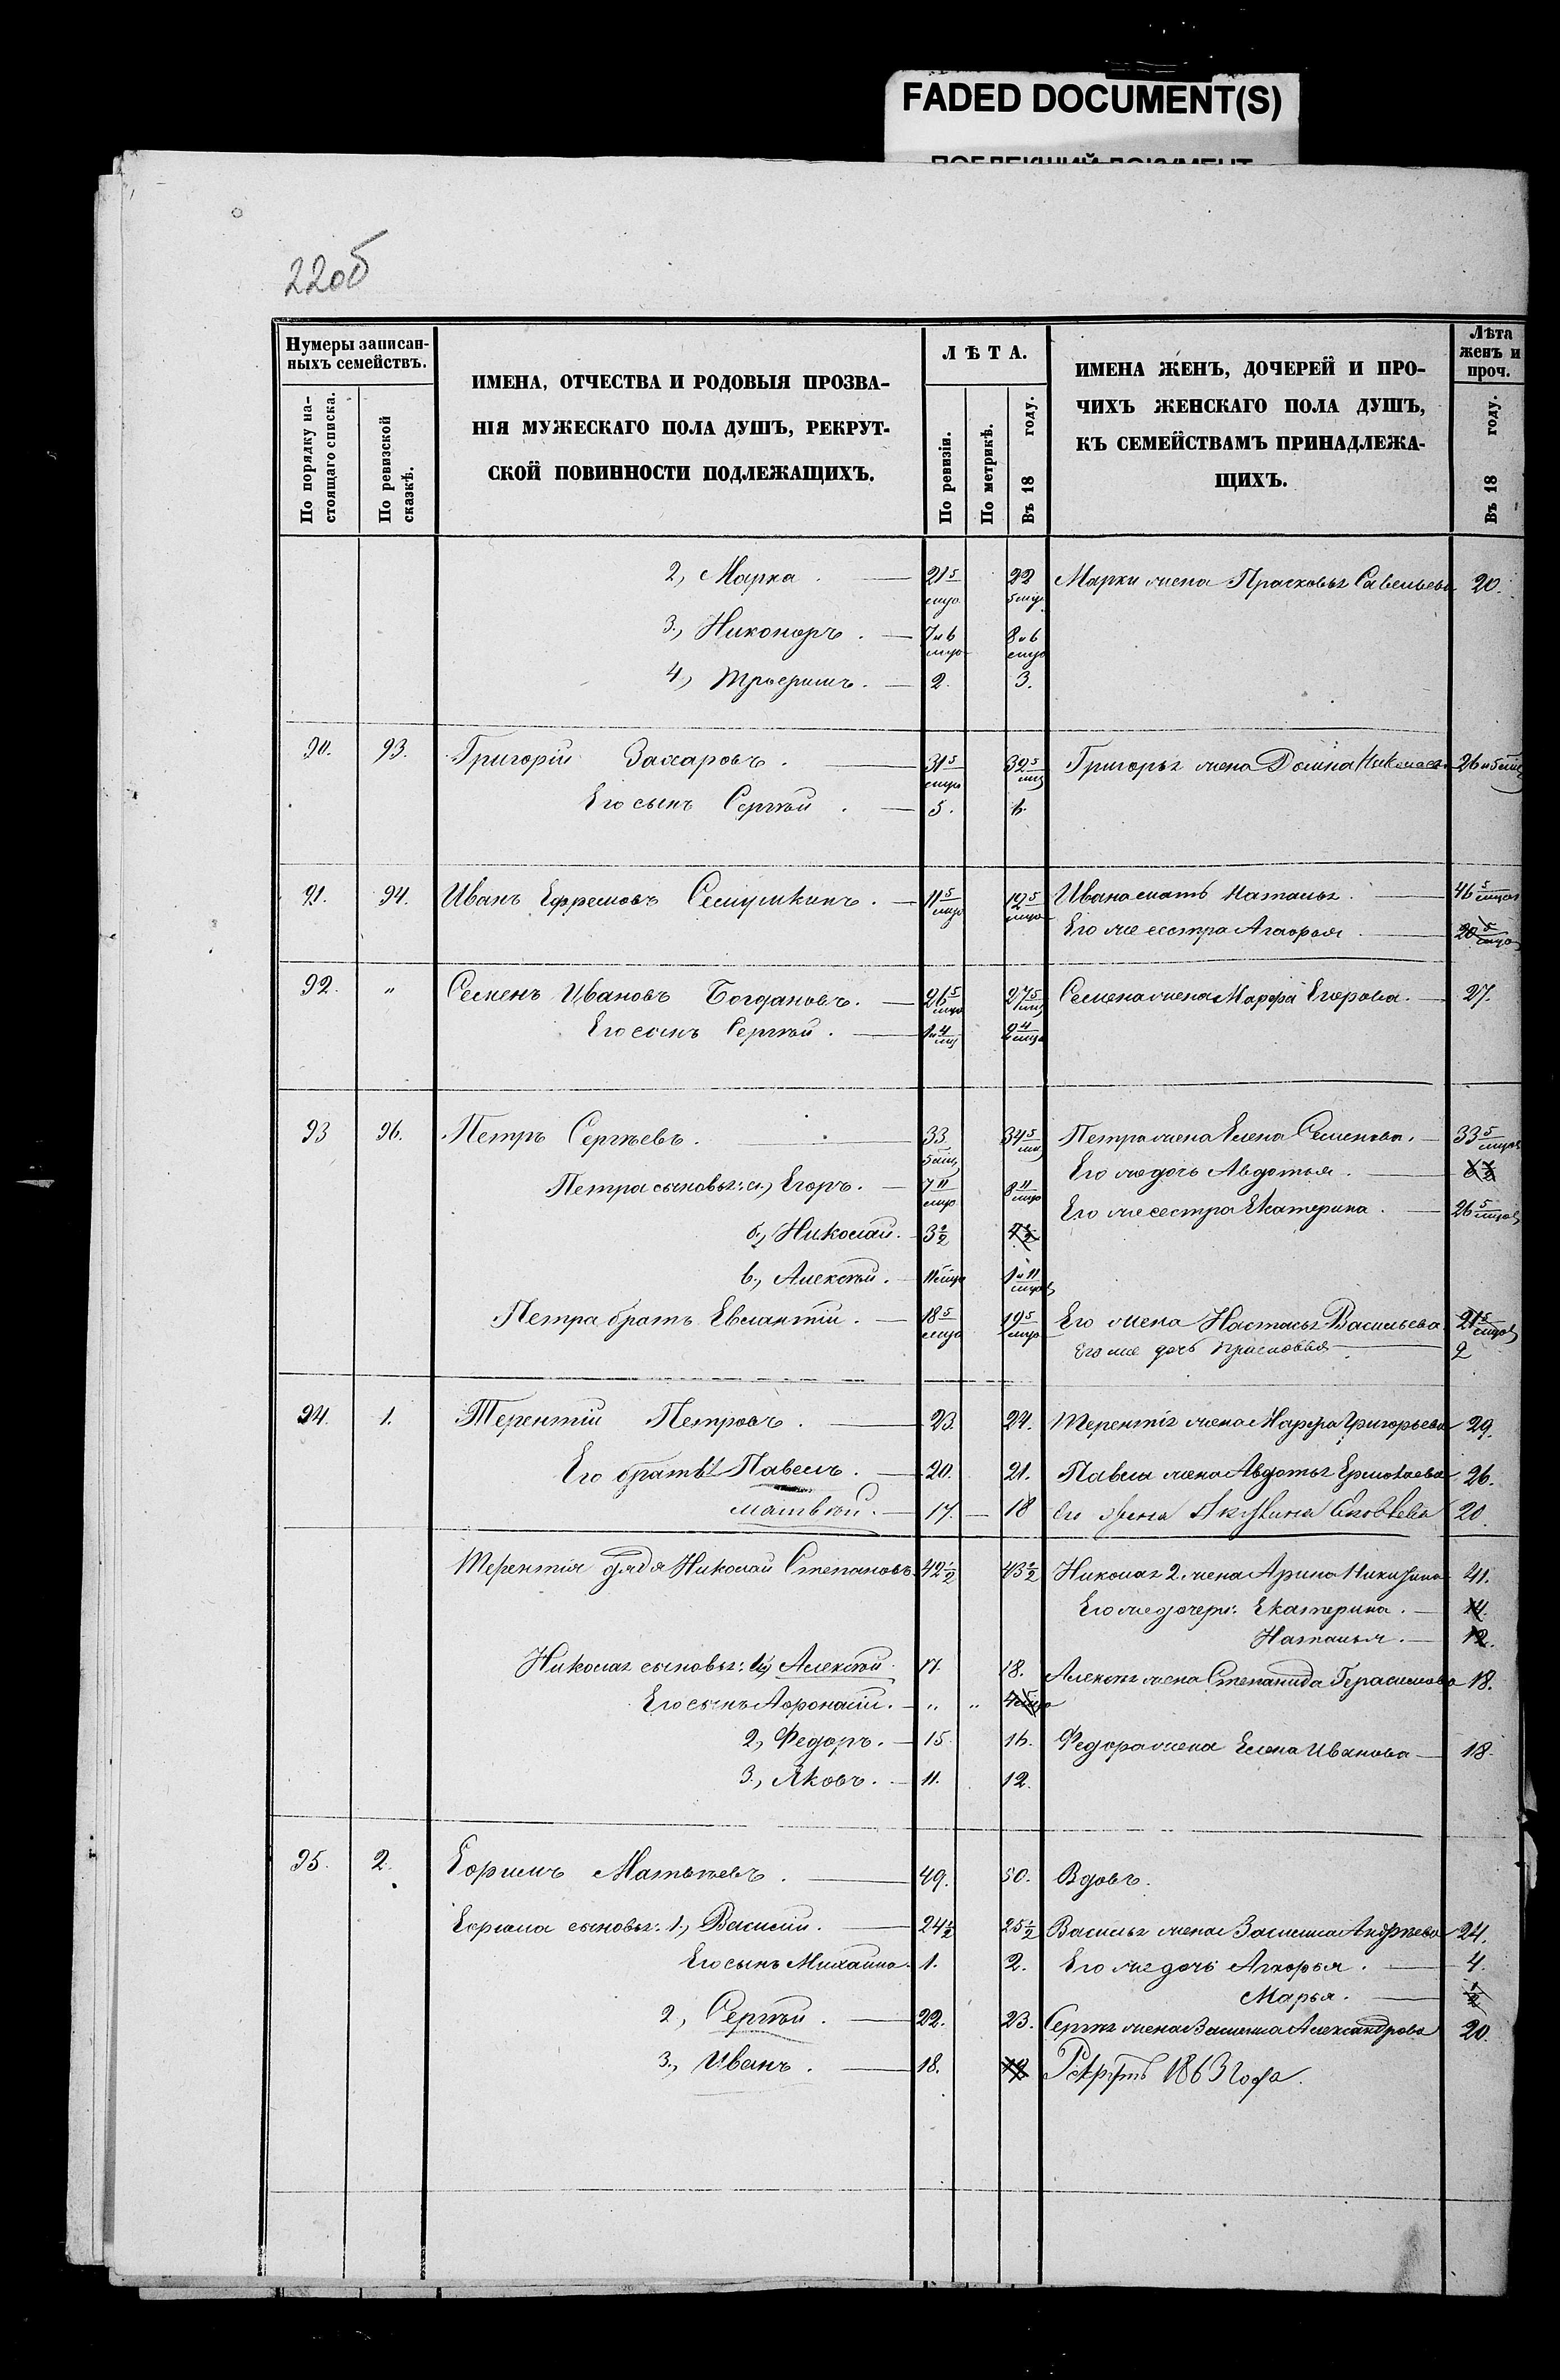 FADED DOCUMENT(S)
220б
Нумеры записан-
ныхъ семействъ.
По порядку на-
стоящаго списка.
По ревизской
сказкѣ.
ИМЕНА, ОТЧЕСТВА И РОДОВЫЯ ПРОЗВА-
НІЯ МУЖЕСКАГО ПОЛА ДУШЪ, РЕКРУТ-
СКОЙ ПОВИННОСТИ ПОДЛЕЖАЩИХЪ.
ЛѢТА.
По ревизіи.
По метрикѣ.
Въ 18 году.
ИМЕНА ЖЕНЪ, ДОЧЕРЕЙ И ПРО-
ЧИХЪ ЖЕНСКАГО ПОЛА ДУШЪ,
КЪ СЕМЕЙСТВАМЪ ПРИНАДЛЕЖА-
ЩИХЪ.
Лѣта
женъ и
проч.
Въ 18 году.
2, Марка. 21 5 22 5 Марки жена Прасковья Савельева 20.
3, Никоноръ. 7 и 6 8 и 6
4, 2. 3.
90. 93. Григорій Захаровъ. 31 5 32 5 Григорья жена Домна Николаева 26 и 5
Его сынъ Сергѣй. 5. 6.
91. 94. Иванъ Ефремовъ 11 5 12 5 Ивана мать Наталья 46 5
Его же сестра Агафья 20 5
92. " Семенъ Ивановъ Богдановъ. 26 5 27 5 Семена жена Марфа Егорова. 27.
Его сынъ Сергѣй. 1 и 4 2 4
93 96. Петръ Сергѣевъ. 33 5 34 5 Петра жена Елена Семенова. 33 5
Его же дочь Авдотья.
Петра сыновья: а, Егоръ. 7 11 8 11 Его же сестра Екатерина. 26 5
б, Николай. 3 1/2 4 1/2
в, Алексѣй. 11 1 и 11
Петра братъ Евлантій. 18 5 19 5 Его жена Настасья Васильева 21 5
Его же дочь 2
94. 1. Терентій Петровъ. 23. 24. Терентія жена Марфа Григорьева 29.
Его братья Павелъ. 20. 21. Павла жена Авдотья Ермолаева 26.
Матвѣй. 17. 18 Его жена Акулина Яковлева 20.
Терентія дядя Николай Степановъ 42 1/2 43 1/2 Николая 2. жена Арина Никитина 41.
Его же дочери: Екатерина. 14.
Наталья. 12.
Николая сыновья: 1, Алексѣй 17. 18. Алексѣя жена Степанида Герасимова 18.
Его сынъ Афонасій. " "
2, Федоръ. 15. 16. Федора жена Елена Иванова 18.
3, Яковъ. 11. 12.
95. 2. Ефимъ Матвѣевъ. 49. 50. Вдовъ.
Ефима сыновья: 1, Василій. 24 1/2 25 1/2 Василья жена Андрѣева 24.
Его сынъ Михайла. 1. 2. Его же дочь Агафья. 4.
Марья. 1/2
2, Сергѣй. 22. 23. Сергѣя жена Александрова 20.
3, Иванъ. 18. 19 Рекрутъ 1863 года.